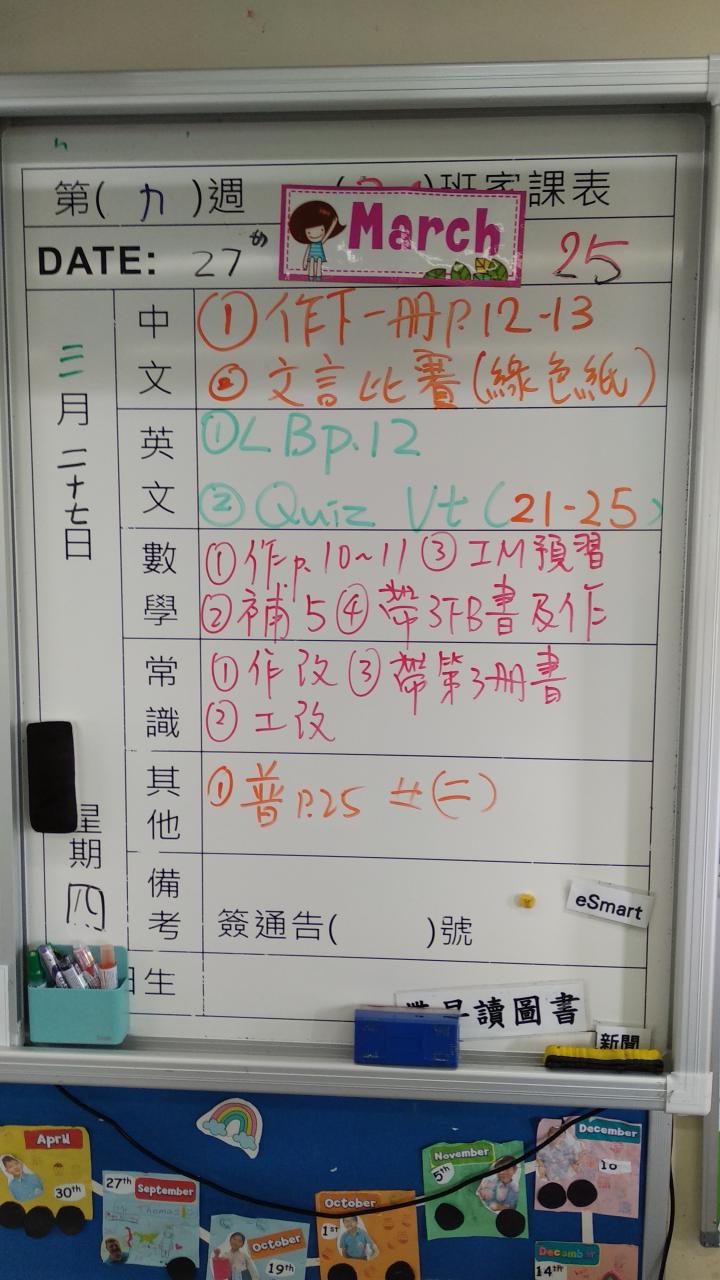 第( 九 )週 ( )班家課表
DATE: 27th March 25
三月二十七日
星期四
中文
①作下一册P.12-13
② 文言比賽(綠色紙)
英文
①LBp.12
② Quiz Vt (21-25)
數學
①作p.10~11 ③ IM預習
②補5 ④ 帶3下B書及作
常識
①作改 ③帶第3册書
② 工改
其他
① 普P.25 廿(二)
備考
簽通告( )號
eSmart
生
早讀圖書
新聞
April
30th
27th September
October
19th
October
1st
November
5th
December
10
December
14th